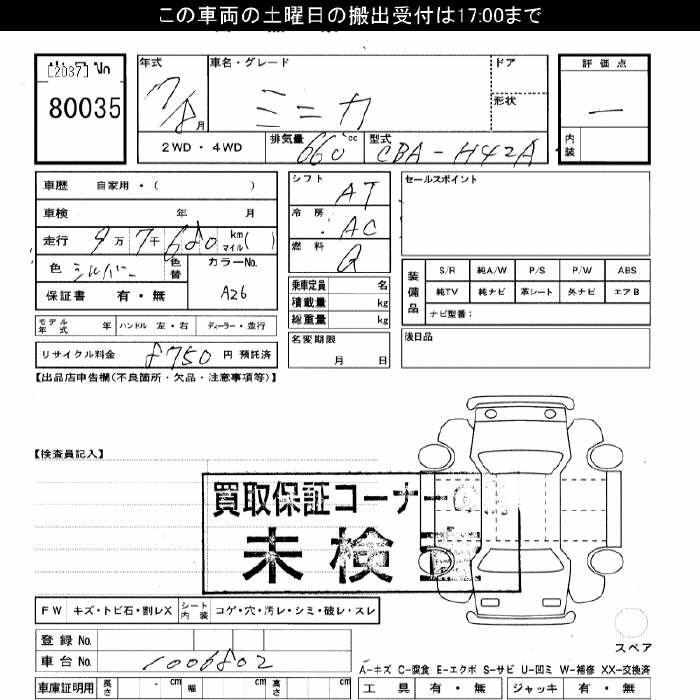 この車両の土曜日の搬出受付は17:00まで
[2037] No
80035
年式
17/8 月
車名・グレード
ミニカ
ドア
形状
評価点
—
内装
2WD・4WD
排気量 660 cc
型式 CBA-H42A
車歴 自家用・( )
車検 年 月
走行 9万 7千 680 km マイル ( )
色 シルバー 色替
カラーNo.
A26
保証書 有・無
シフト
AT
冷房
AC
燃料
G
乗車定員 名
積載量 kg
総重量 kg
名変期限
月 日
セールスポイント
装備品
S/R 純A/W P/S P/W ABS
純TV 純ナビ 革シート 外ナビ エアB
ナビ型番:
後日品
モデル年式 年 ハンドル 左・右 ディーラー・並行
リサイクル料金 8750 円 預託済
【出品店申告欄(不良箇所・欠品・注意事項等)】
【検査員記入】
買取保証コーナー
未検
FW キズ・トビ石・割レX シート内装 コゲ・穴・汚レ・シミ・破レ・スレ
登録 No.
車台 No. 1006802
車庫証明用 長さ cm 幅 cm 高さ cm
スペア
A-キズ C-腐食 E-エクボ S-サビ U-凹ミ W-補修 XX-交換済
工具 有・無 ジャッキ 有・無